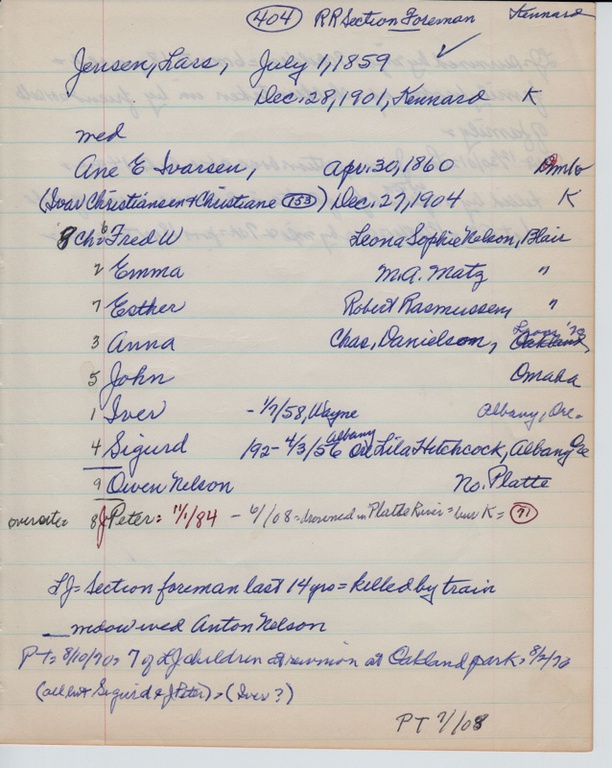 404 RR Section Foreman Kennard
Jensen, Lars, July 1, 1859 ✓
Dec. 28, 1901, Kennard K
med
Ane E Ivarsen, Apr. 30, 1860
(Ivar Christiansen & Christiane 153) Dec. 27, 1904 K
8 Ch: 6 Fred W Leona Sophie Nelson, Blair
2 Emma M.A. Matz "
7 Esther Robert Rasmussen, "
3 Anna Chas. Danielson, Oakland,
5 John Omaha
1 Iver - 1/7/58, Wayne Albany, Ore-
4 Sigurd 192- 4/3/56 Albany Ore Lila Hitchcock, Albany Ore
9 Owen Nelson No. Platte
overseter 8 J Peter = 11/1/84 - 6/1/08 = drowned in Platte River = bur K = 71
LJ = Section foreman last 14 yrs = killed by train
widow wed Anton Nelson
PT = 8/10/70 = 7 of LJ children at reunion at Oakland park = 8/2/70
(all but Sigurd & J Peter) = (Iver?)
PT 7/08